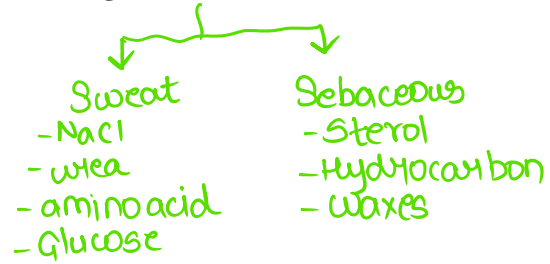 Sweat
- NaCl
- urea
- aminoacid
- Glucose
Sebaceous
- Sterol
- Hydrocarbon
- Waxes